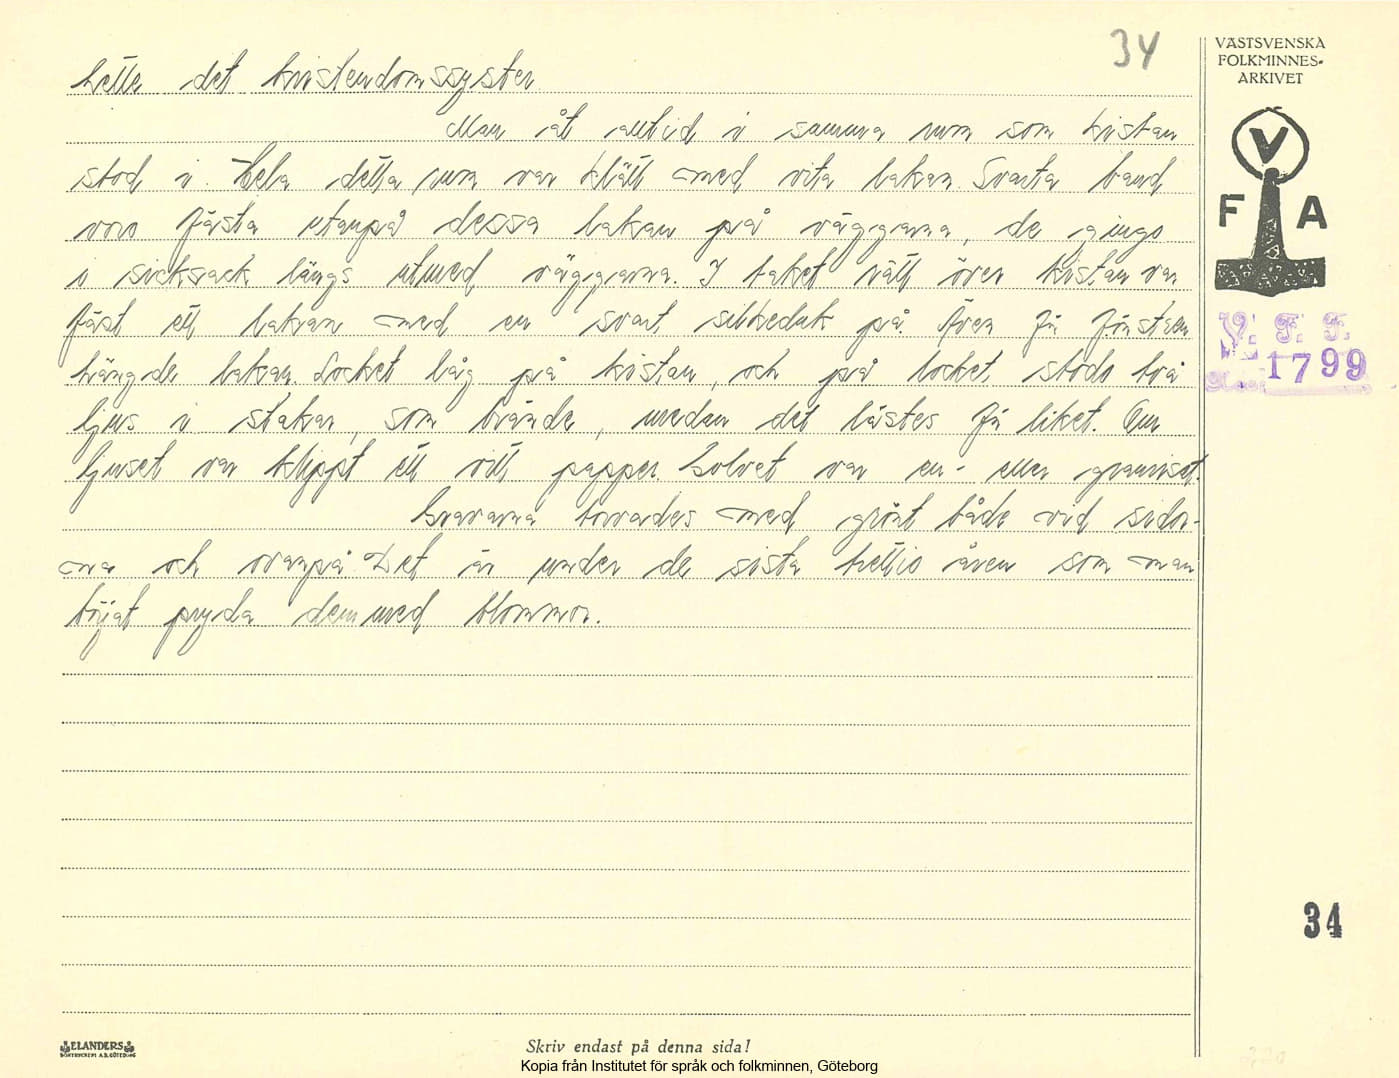 34
hette det kristendomssyster.
Man åt alltid i samma rum som kistan
stod i. Hela detta rum var klätt med vita lakan. Svarta band
voro fästa utanpå dessa lakan på väggarna, de gingo
i sicksack längs utmed väggarna. I taket rätt över kistan var
fäst ett lakan med en svart silkeduk på. Även för fönstren
hängde lakan. Locket låg på kistan, och på locket stodo två
ljus i stakar, som brände, medan det lästes för liket. Om
ljuset var klippt ett vitt papper. Golvet var en- eller granrisat.
Gravarna borrades med grönt både vid sidor-
na och ovanpå. Det är under de sista trettio åren som man
börjat pryda dem med blommor.
VÄSTSVENSKA
FOLKMINNES-
ARKIVET
V
F A
V. F. F.
1799
34
ELANDERS
BOKTRYCKERI A.B. GÖTEBORG
Skriv endast på denna sida!
Kopia från Institutet för språk och folkminnen, Göteborg